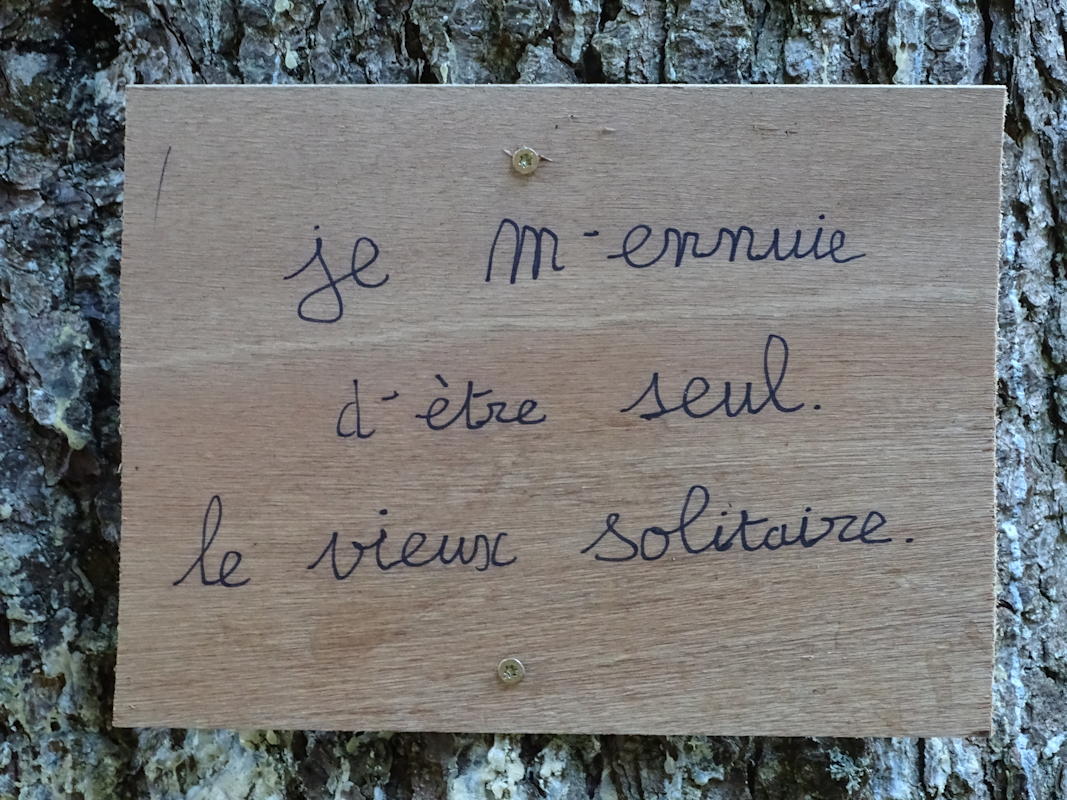 je m-ennuie
d-ètre seul.
le vieux solitaire.